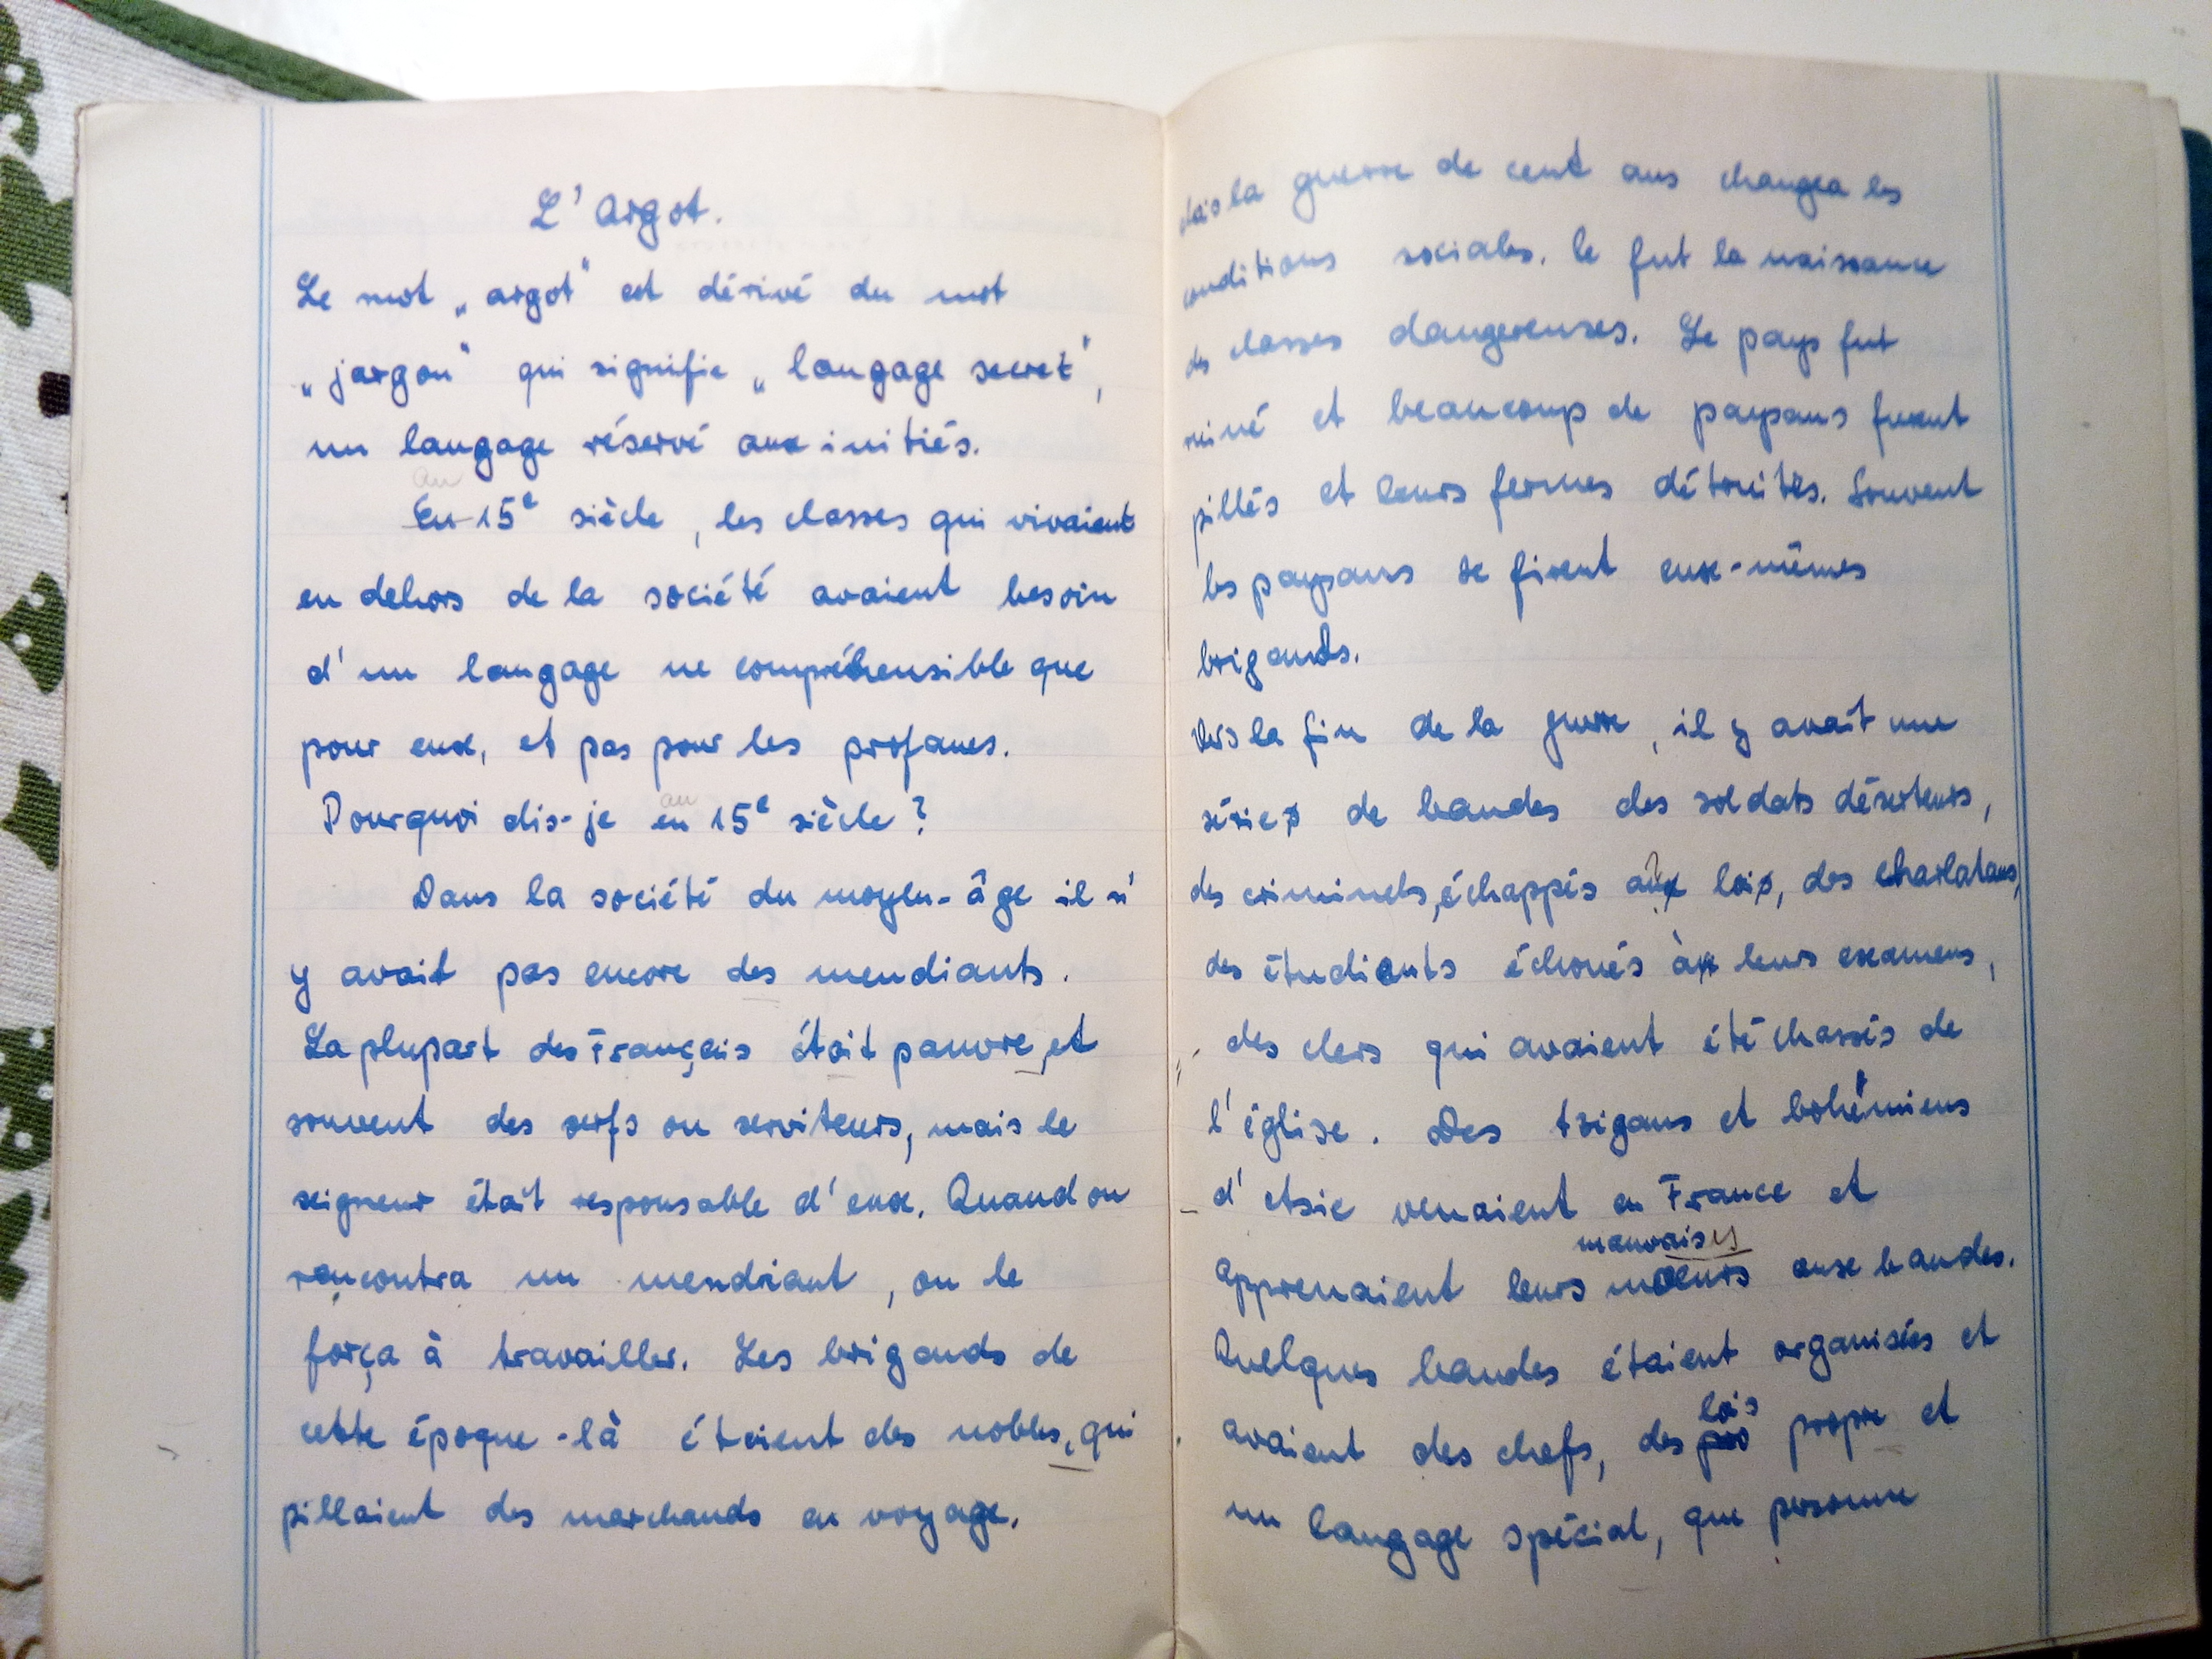 L'Argot.
Le mot „argot" est dérivé du mot
„jargon" qui signifie „langage secret",
un langage réservé aux initiés.
au
En 15e siècle, les classes qui vivaient
en dehors de la société avaient besoin
d'un langage ne compréhensible que
pour eux, et pas pour les profanes.
au
Pourquoi dis-je en 15e siècle?
Dans la société du moyen-âge il n'
y avait pas encore des mendiants.
La plupart des Français était pauvre, et
souvent des serfs ou serviteurs, mais le
seigneur était responsable d'eux. Quand on
rencontra un mendiant, on le
força à travailler. Les brigands de
cette époque-là étaient des nobles, qui
pillaient des marchands en voyage.
Mais la guerre de cent ans changea les
conditions sociales. Ce fut la naissance
des classes dangereuses. Le pays fut
ruiné et beaucoup de paysans furent
pillés et leurs fermes détruites. Souvent
les paysans se firent eux-mêmes
brigands.
Vers la fin de la guerre, il y avait une
série de bandes des soldats déserteurs,
des criminels, échappés à la loi, des charlatans,
des étudiants échoués à leurs examens,
des clers qui avaient été chassés de
l'église. Des tzigans et bohémiens
d'Asie venaient en France et
mauvaises
apprenaient leurs moeurs aux bandes.
Quelques bandes étaient organisées et
lois
avaient des chefs, des propre et
un langage spécial, que personne